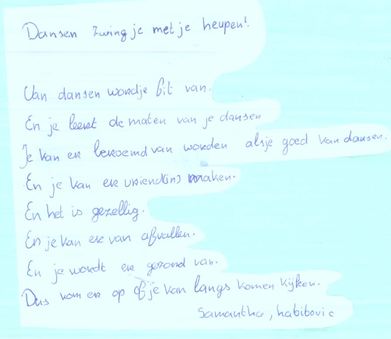 Dansen zwing je met je heupen!
Van dansen wordje fit van.
En je leert de maten van je dansen
Je kan er beroemd van worden alsje goed van dansen.
En je kan er vriend(in) maken.
En het is gezellig.
En je kan er van afvallen.
En je wordt er gezond van.
Dus kom er op of je kan langs komen kijken.
Samantha, habibovic